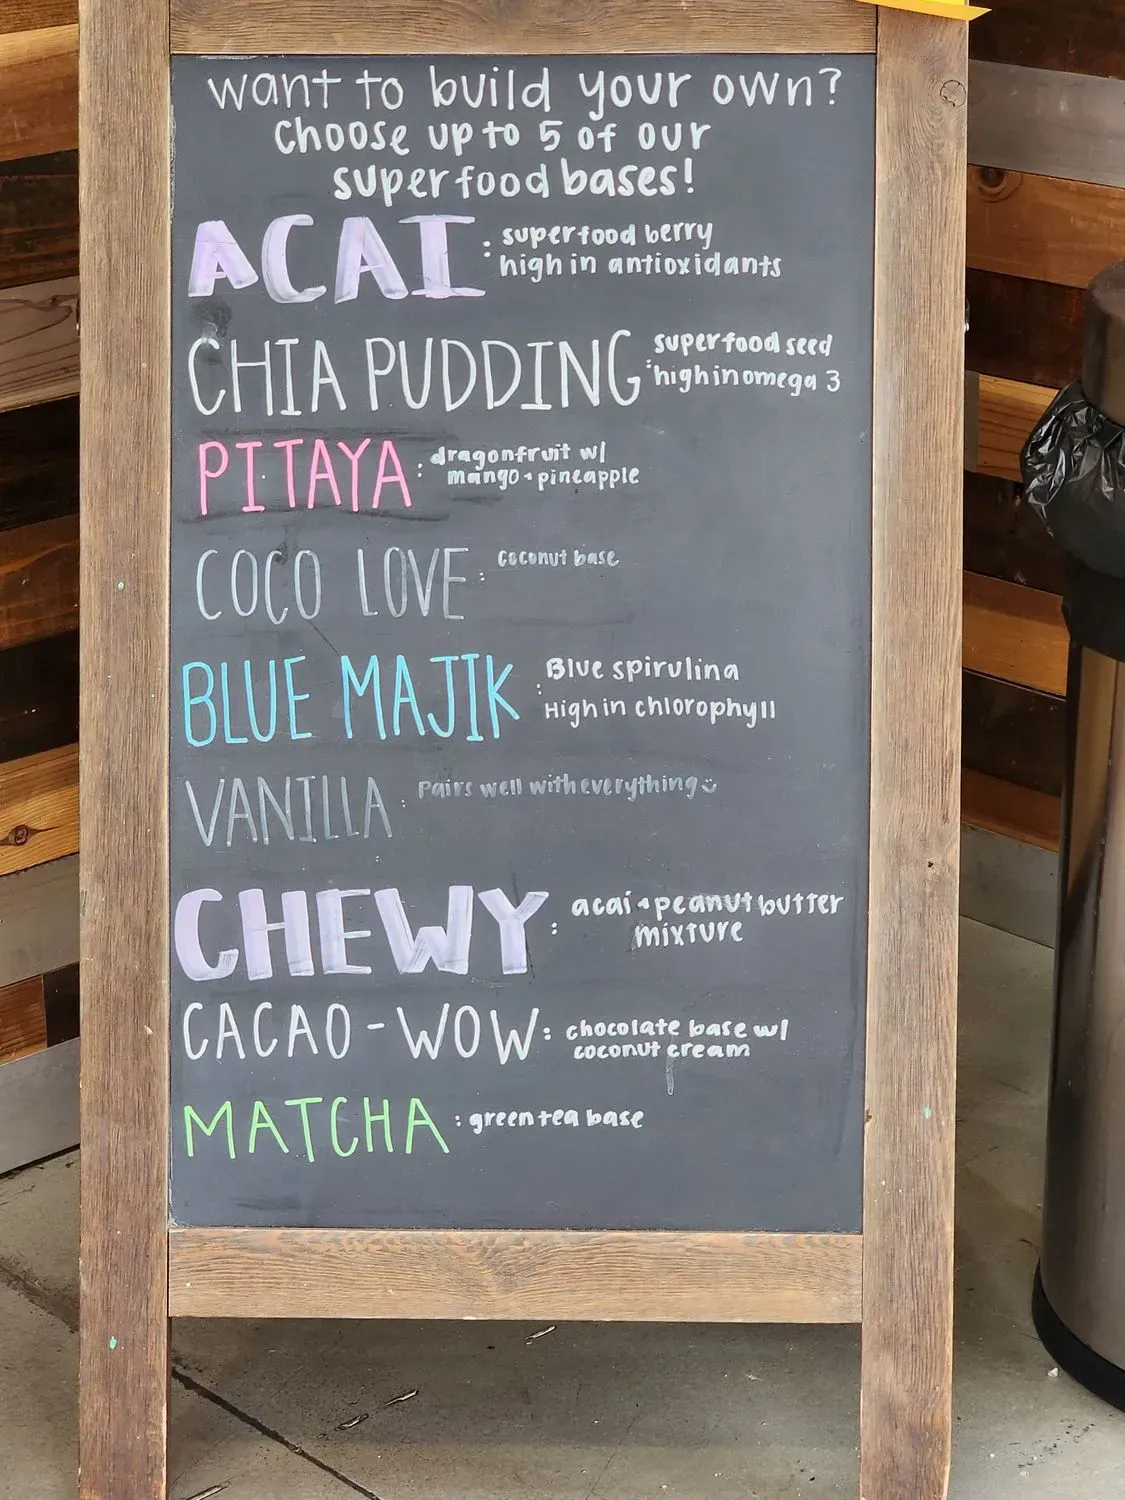 want to build your own?
Choose up to 5 of our
superfood bases!
ACAI : superfood berry
high in antioxidants
CHIA PUDDING : superfood seed
high in omega 3
PITAYA : dragonfruit w/
mango + pineapple
COCO LOVE : Coconut base
BLUE MAJIK : Blue spirulina
High in chlorophyll
VANILLA : Pairs well with everything
CHEWY : acai + peanut butter
mixture
CACAO-WOW : chocolate base w/
coconut cream
MATCHA : green tea base